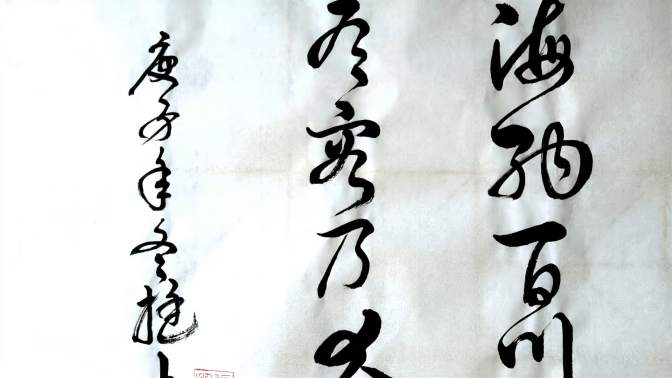 海纳百川
有容乃大
庚子年冬